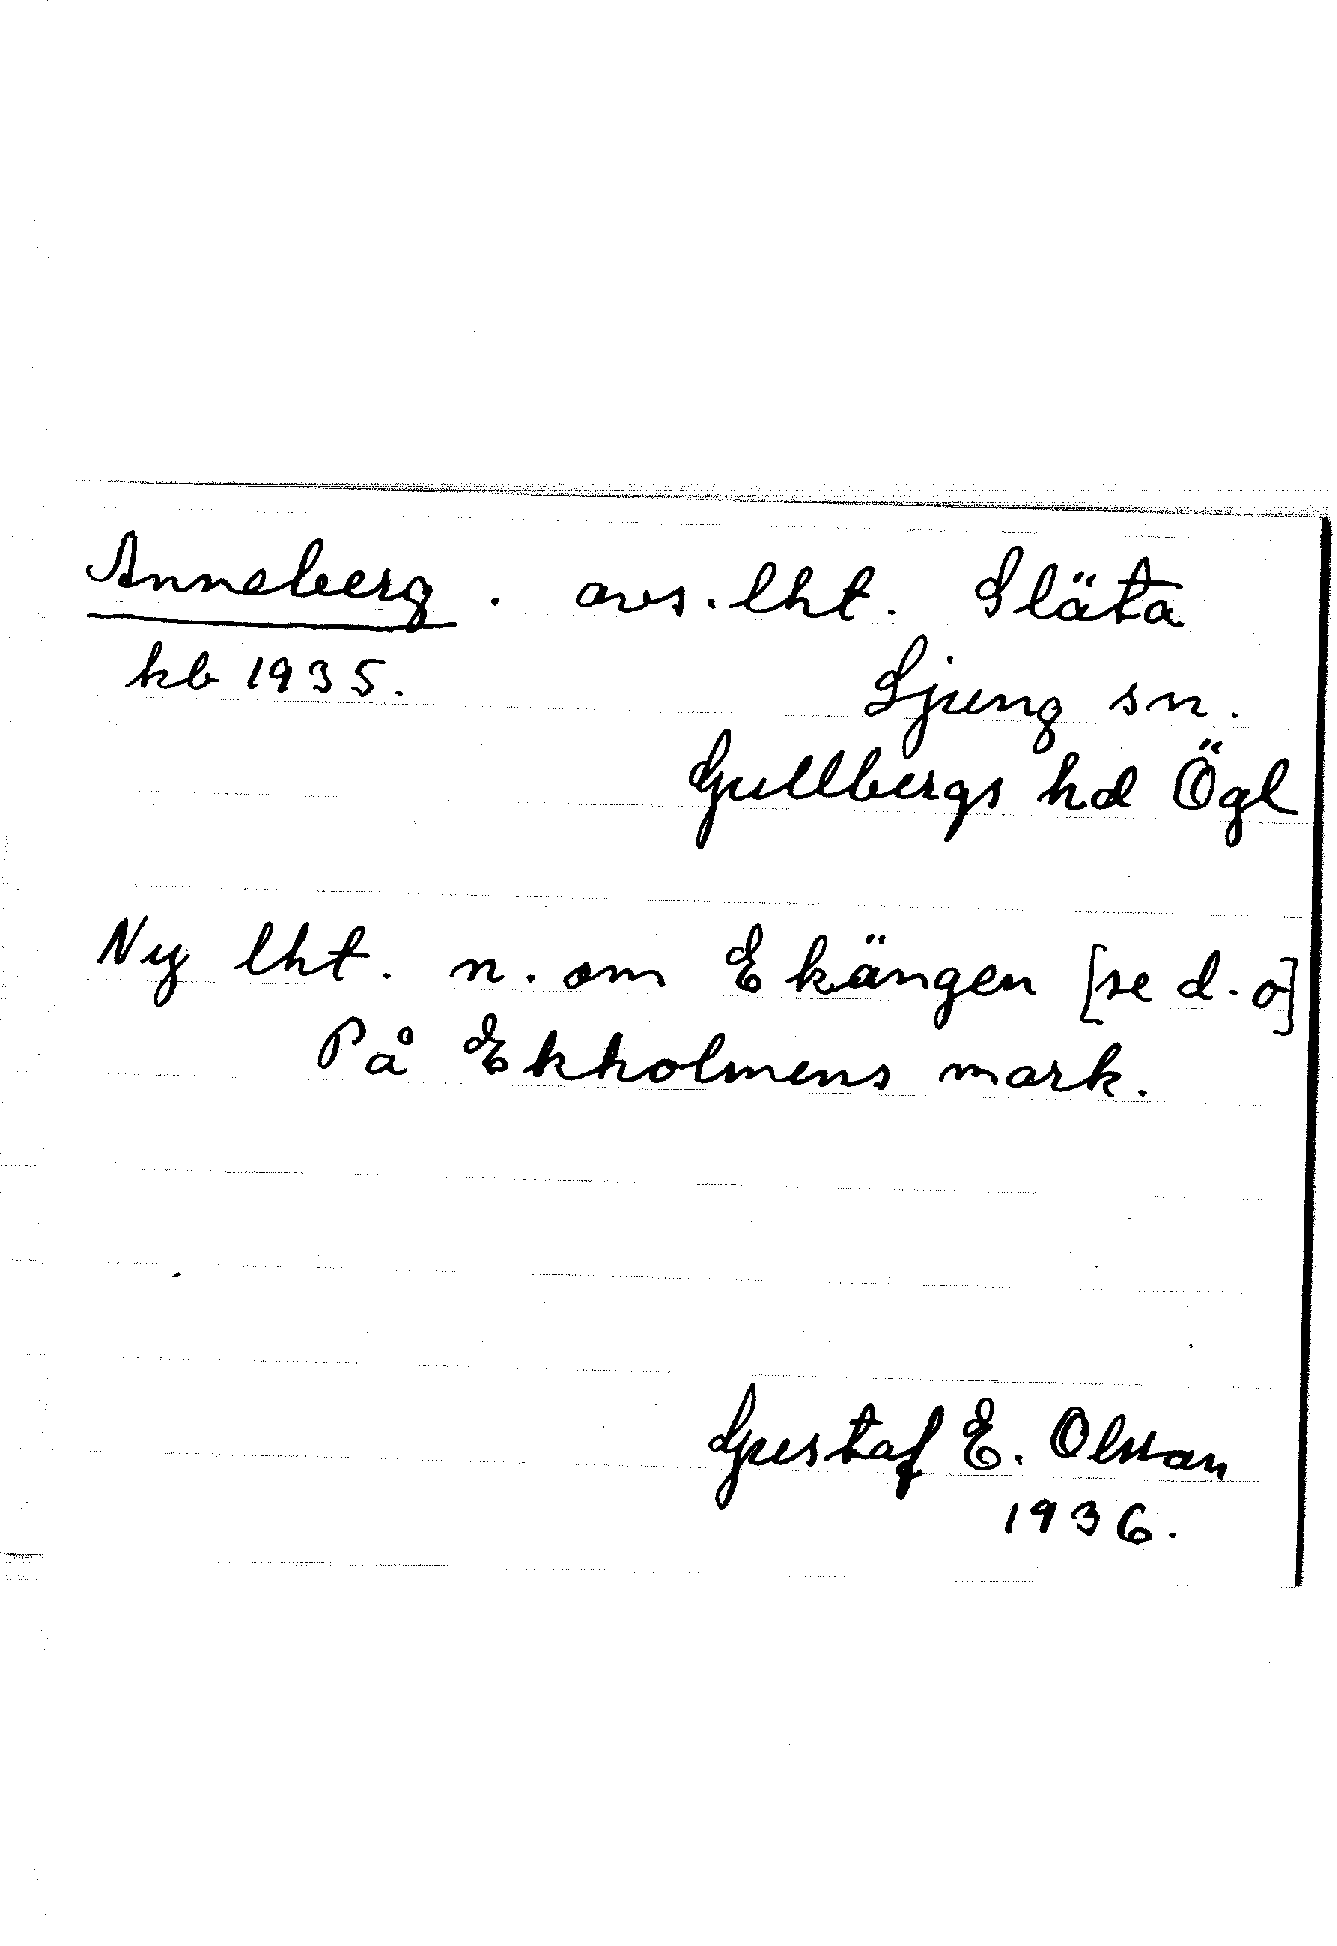 Anneberg. avs. lht. Släta
kb 1935. Ljung sn.
Gullbergs hd Ögl
Ny lht. n. om Ekängen [se d. o]
På Ekholmens mark.
Gustaf E. Olsson
1936.